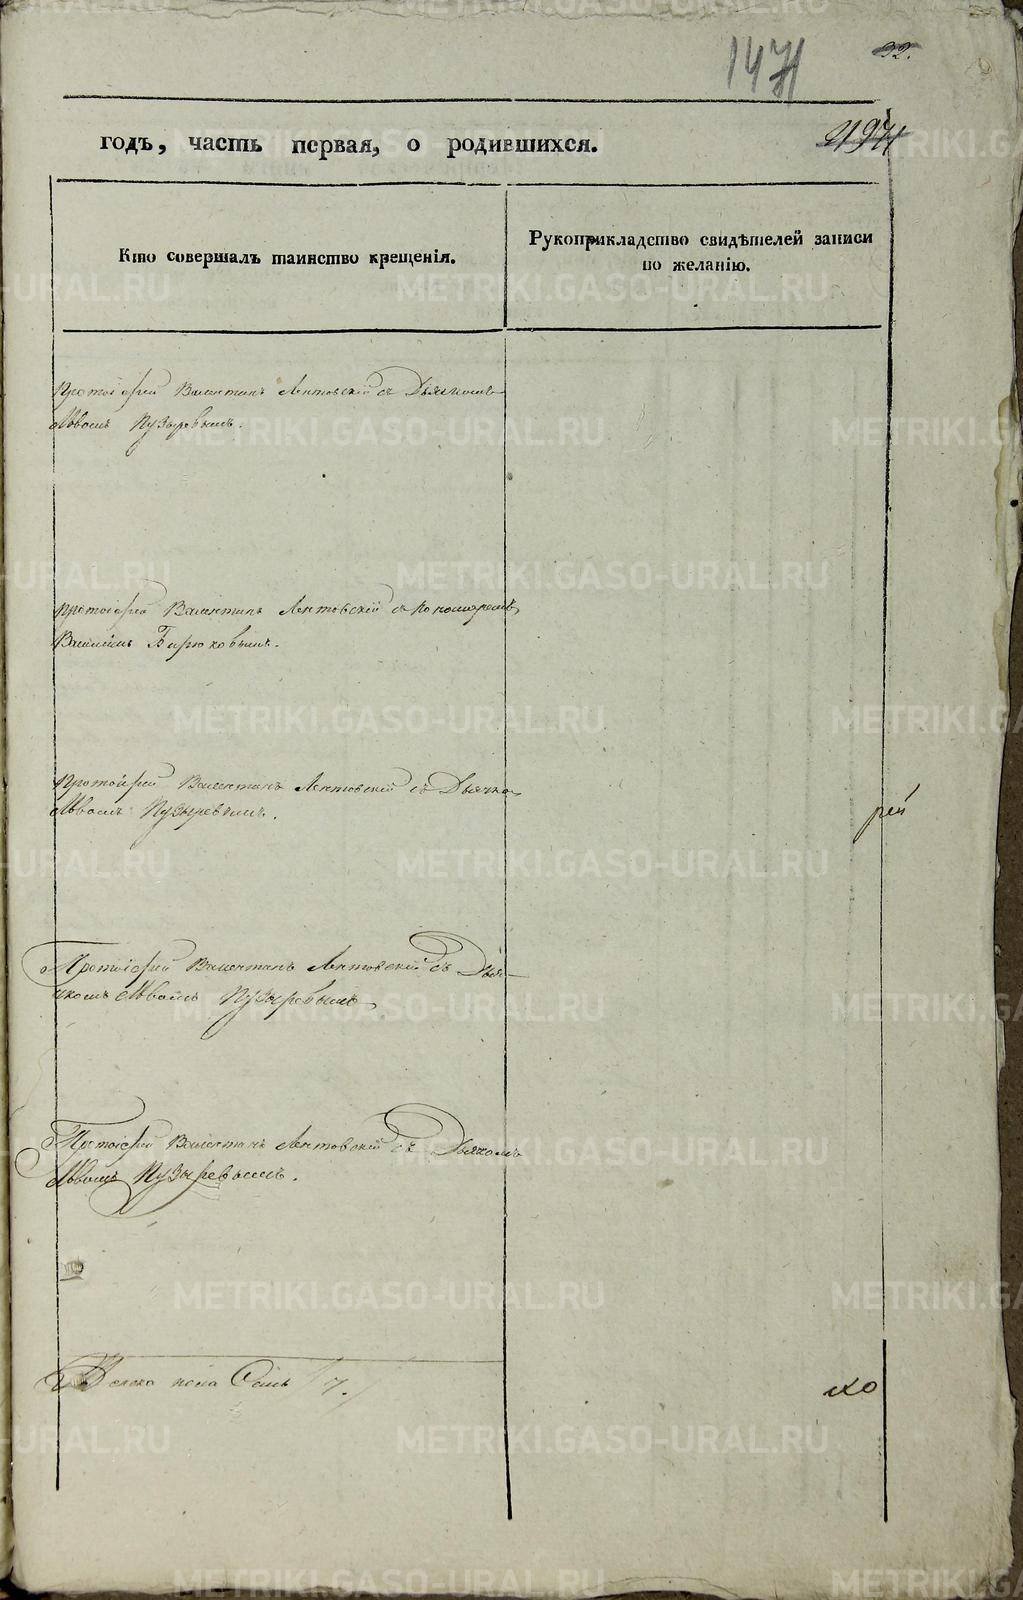 147
32.
197
годъ, часть первая, о родившихся.
Кто совершалъ таинство крещенія.
Рукоприкладство свидѣтелей записи
по желанію.
Протоіерей Валентинъ Лентовскій съ Дьячкомъ
Львомъ Пузыревымъ.
Протоіерей Валентинъ Лентовскій съ Пономаремъ
Василіемъ Бирюковымъ.
Протоіерей Валентинъ Лентовскій съ Дьячко
Львомъ Пузыревымъ.
рей
Протоіерей Валентинъ Лентовскій съ Дья-
чкомъ Львомъ Пузыревымъ
Протоіерей Валентинъ Лентовскій съ Дьячкомъ
Львомъ Пузыревымъ.
пола Семь 7.
METRIKI.GASO-URAL.RU